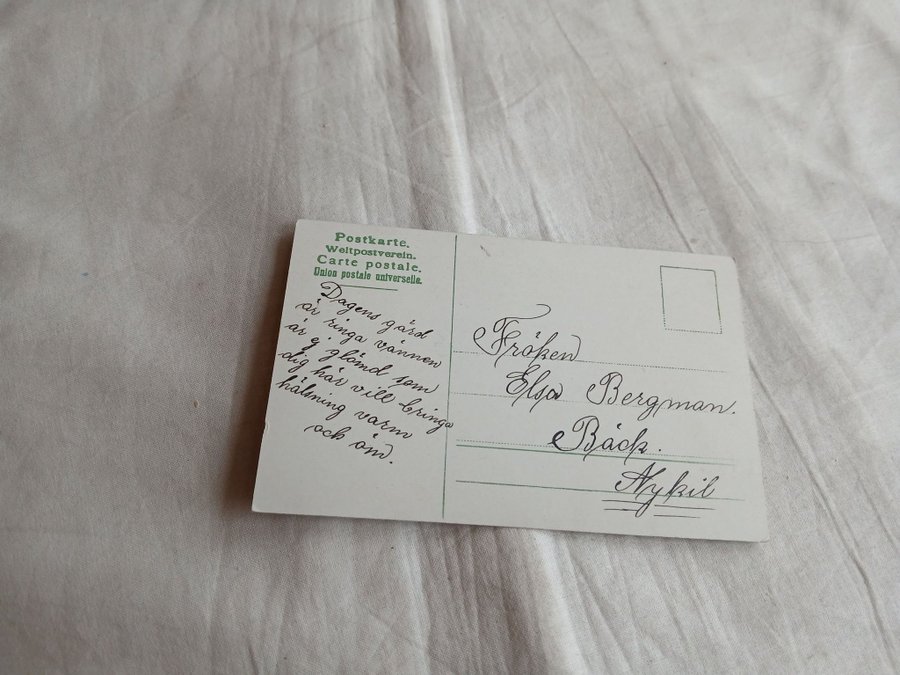 Postkarte.
Weltpostverein.
Carte postale.
Union postale universelle.
Dagens gärd
är ringa vännen
är ej glömd som
dig här vill bringa
hälsning varm
och öm.
Fröken
Elsa Bergman.
Bäck.
Nykil